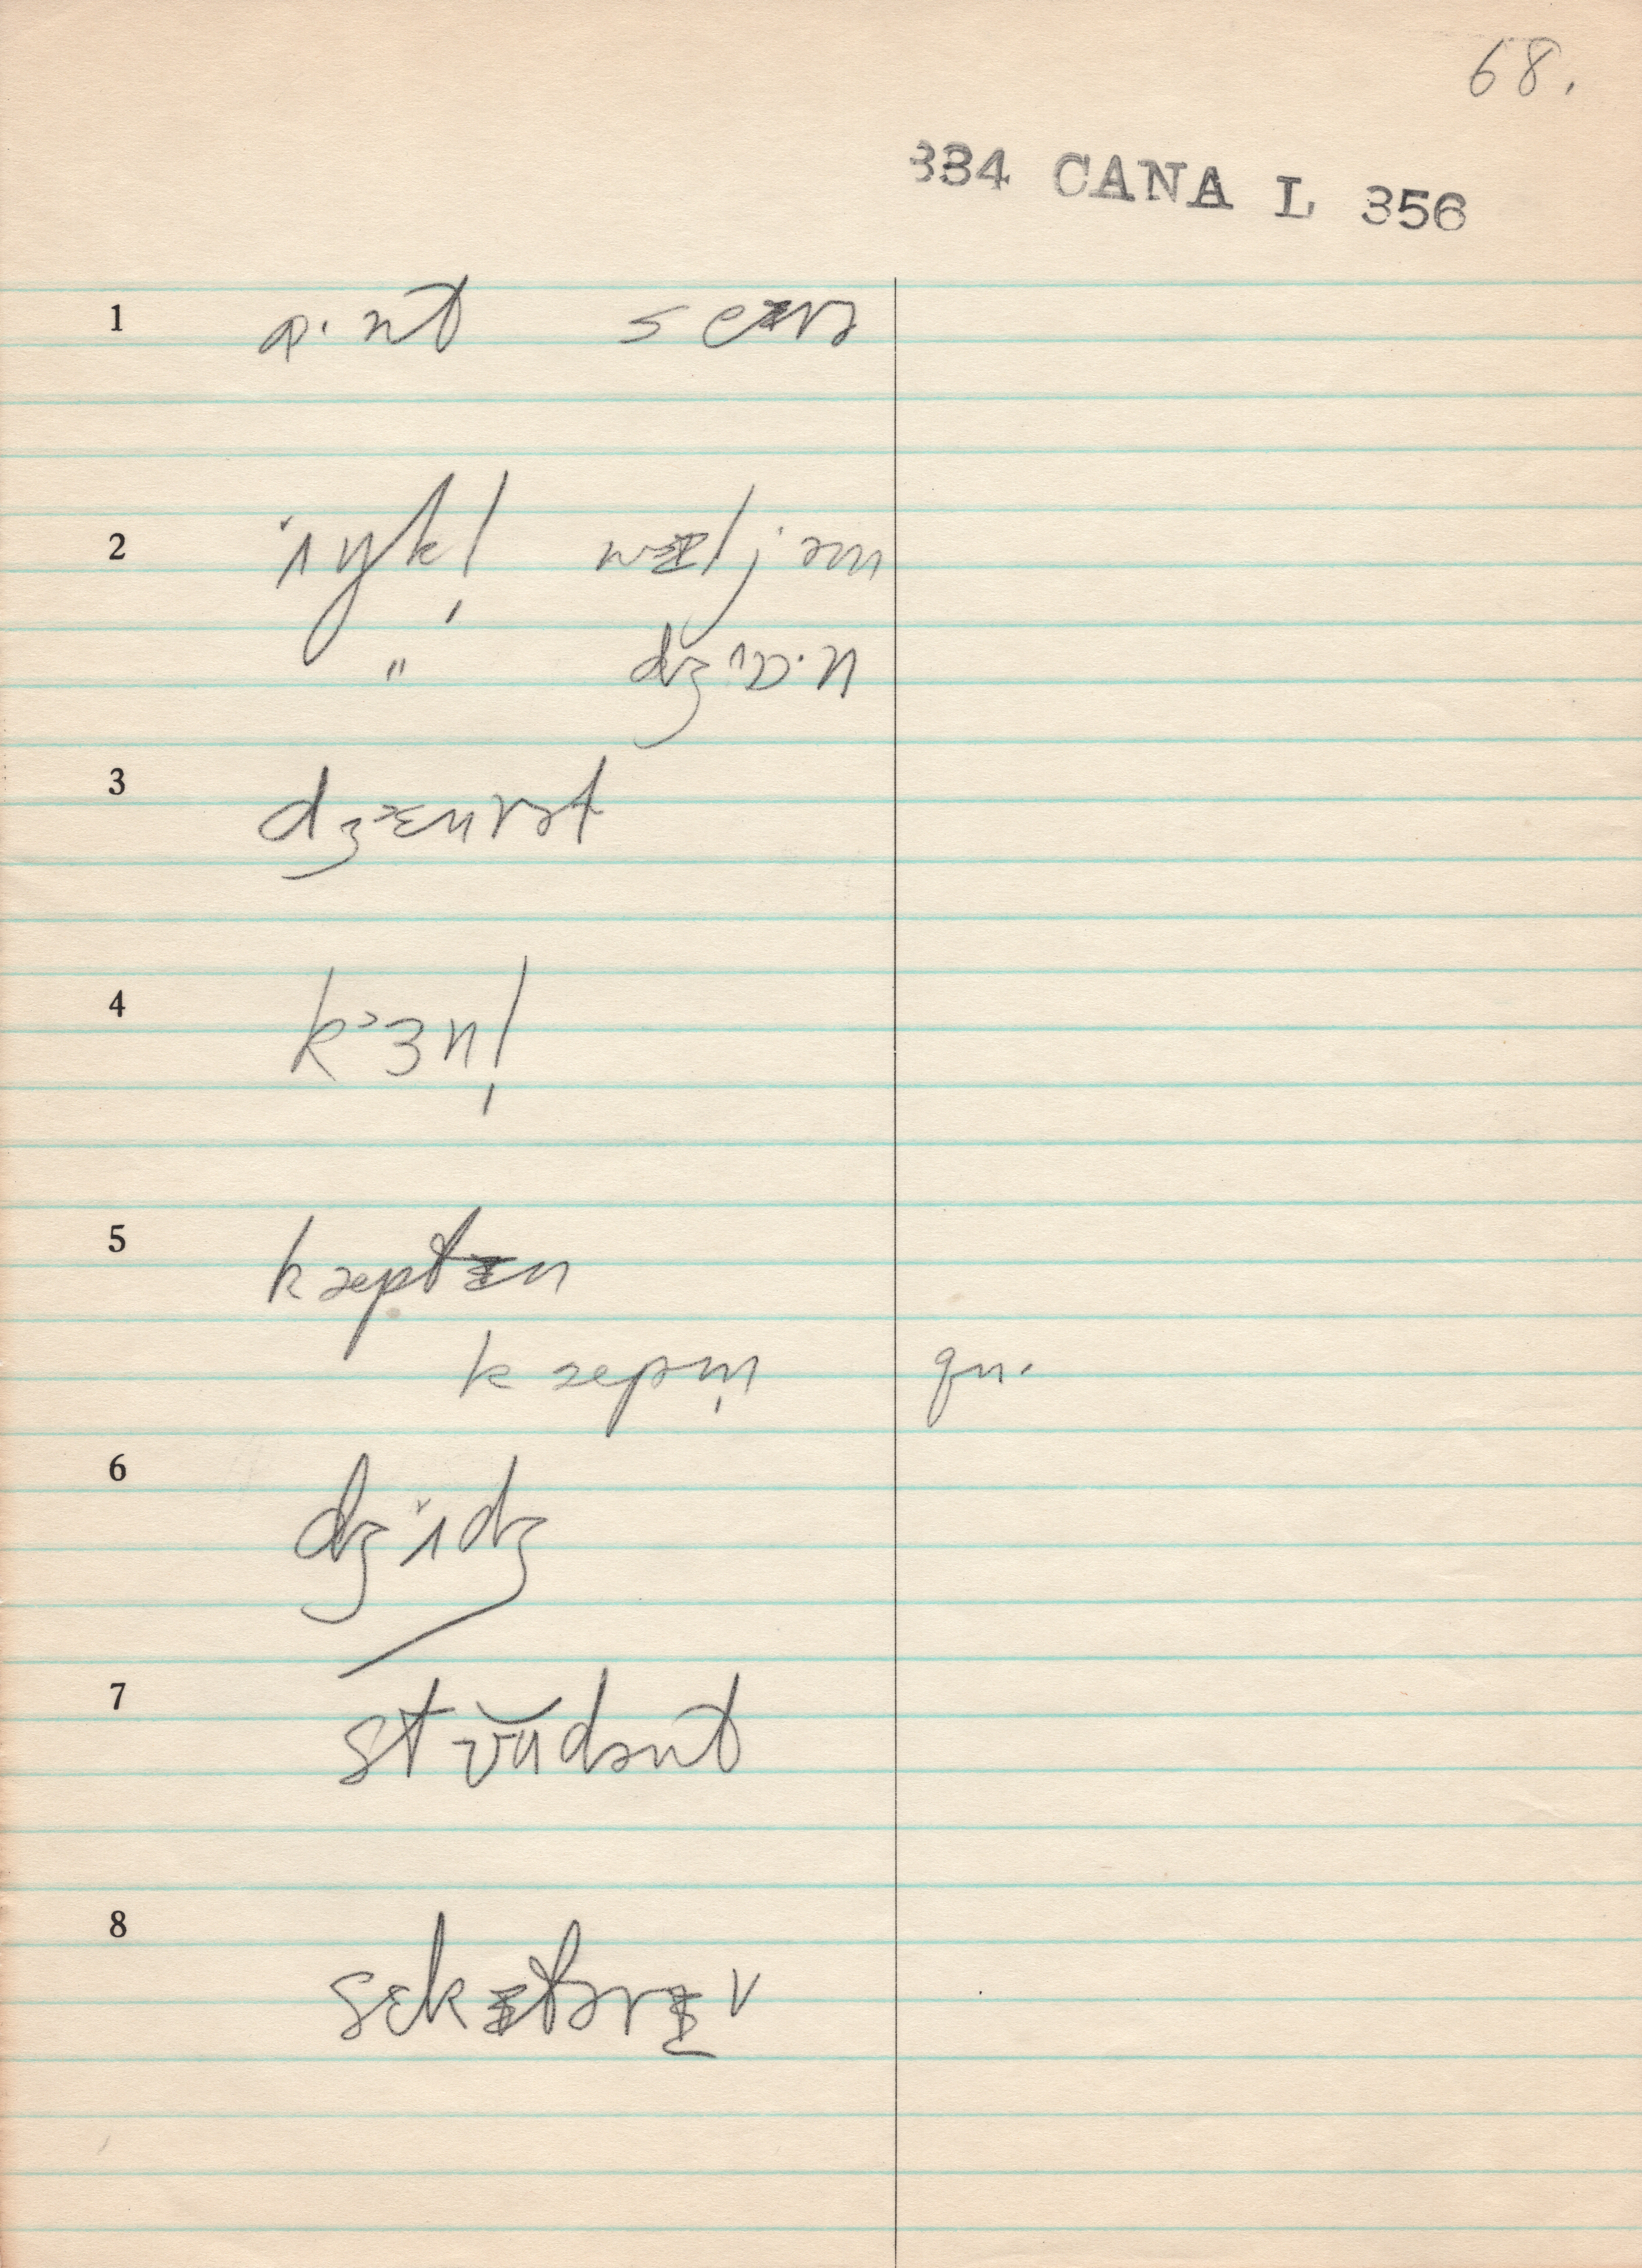 68.
334 CANA L 356
1 ɑ·nt seᵻrə
2 ʌŋkl̩ wᵻljəm
" dʒɒ·n
3 dʒɛnrət
4 kɜnl̩
5 kæptᵻn
kæpm̩ qu.
6 dʒʌdʒ
7 stʊudənt
8 sɛkᵻtərᵻ v